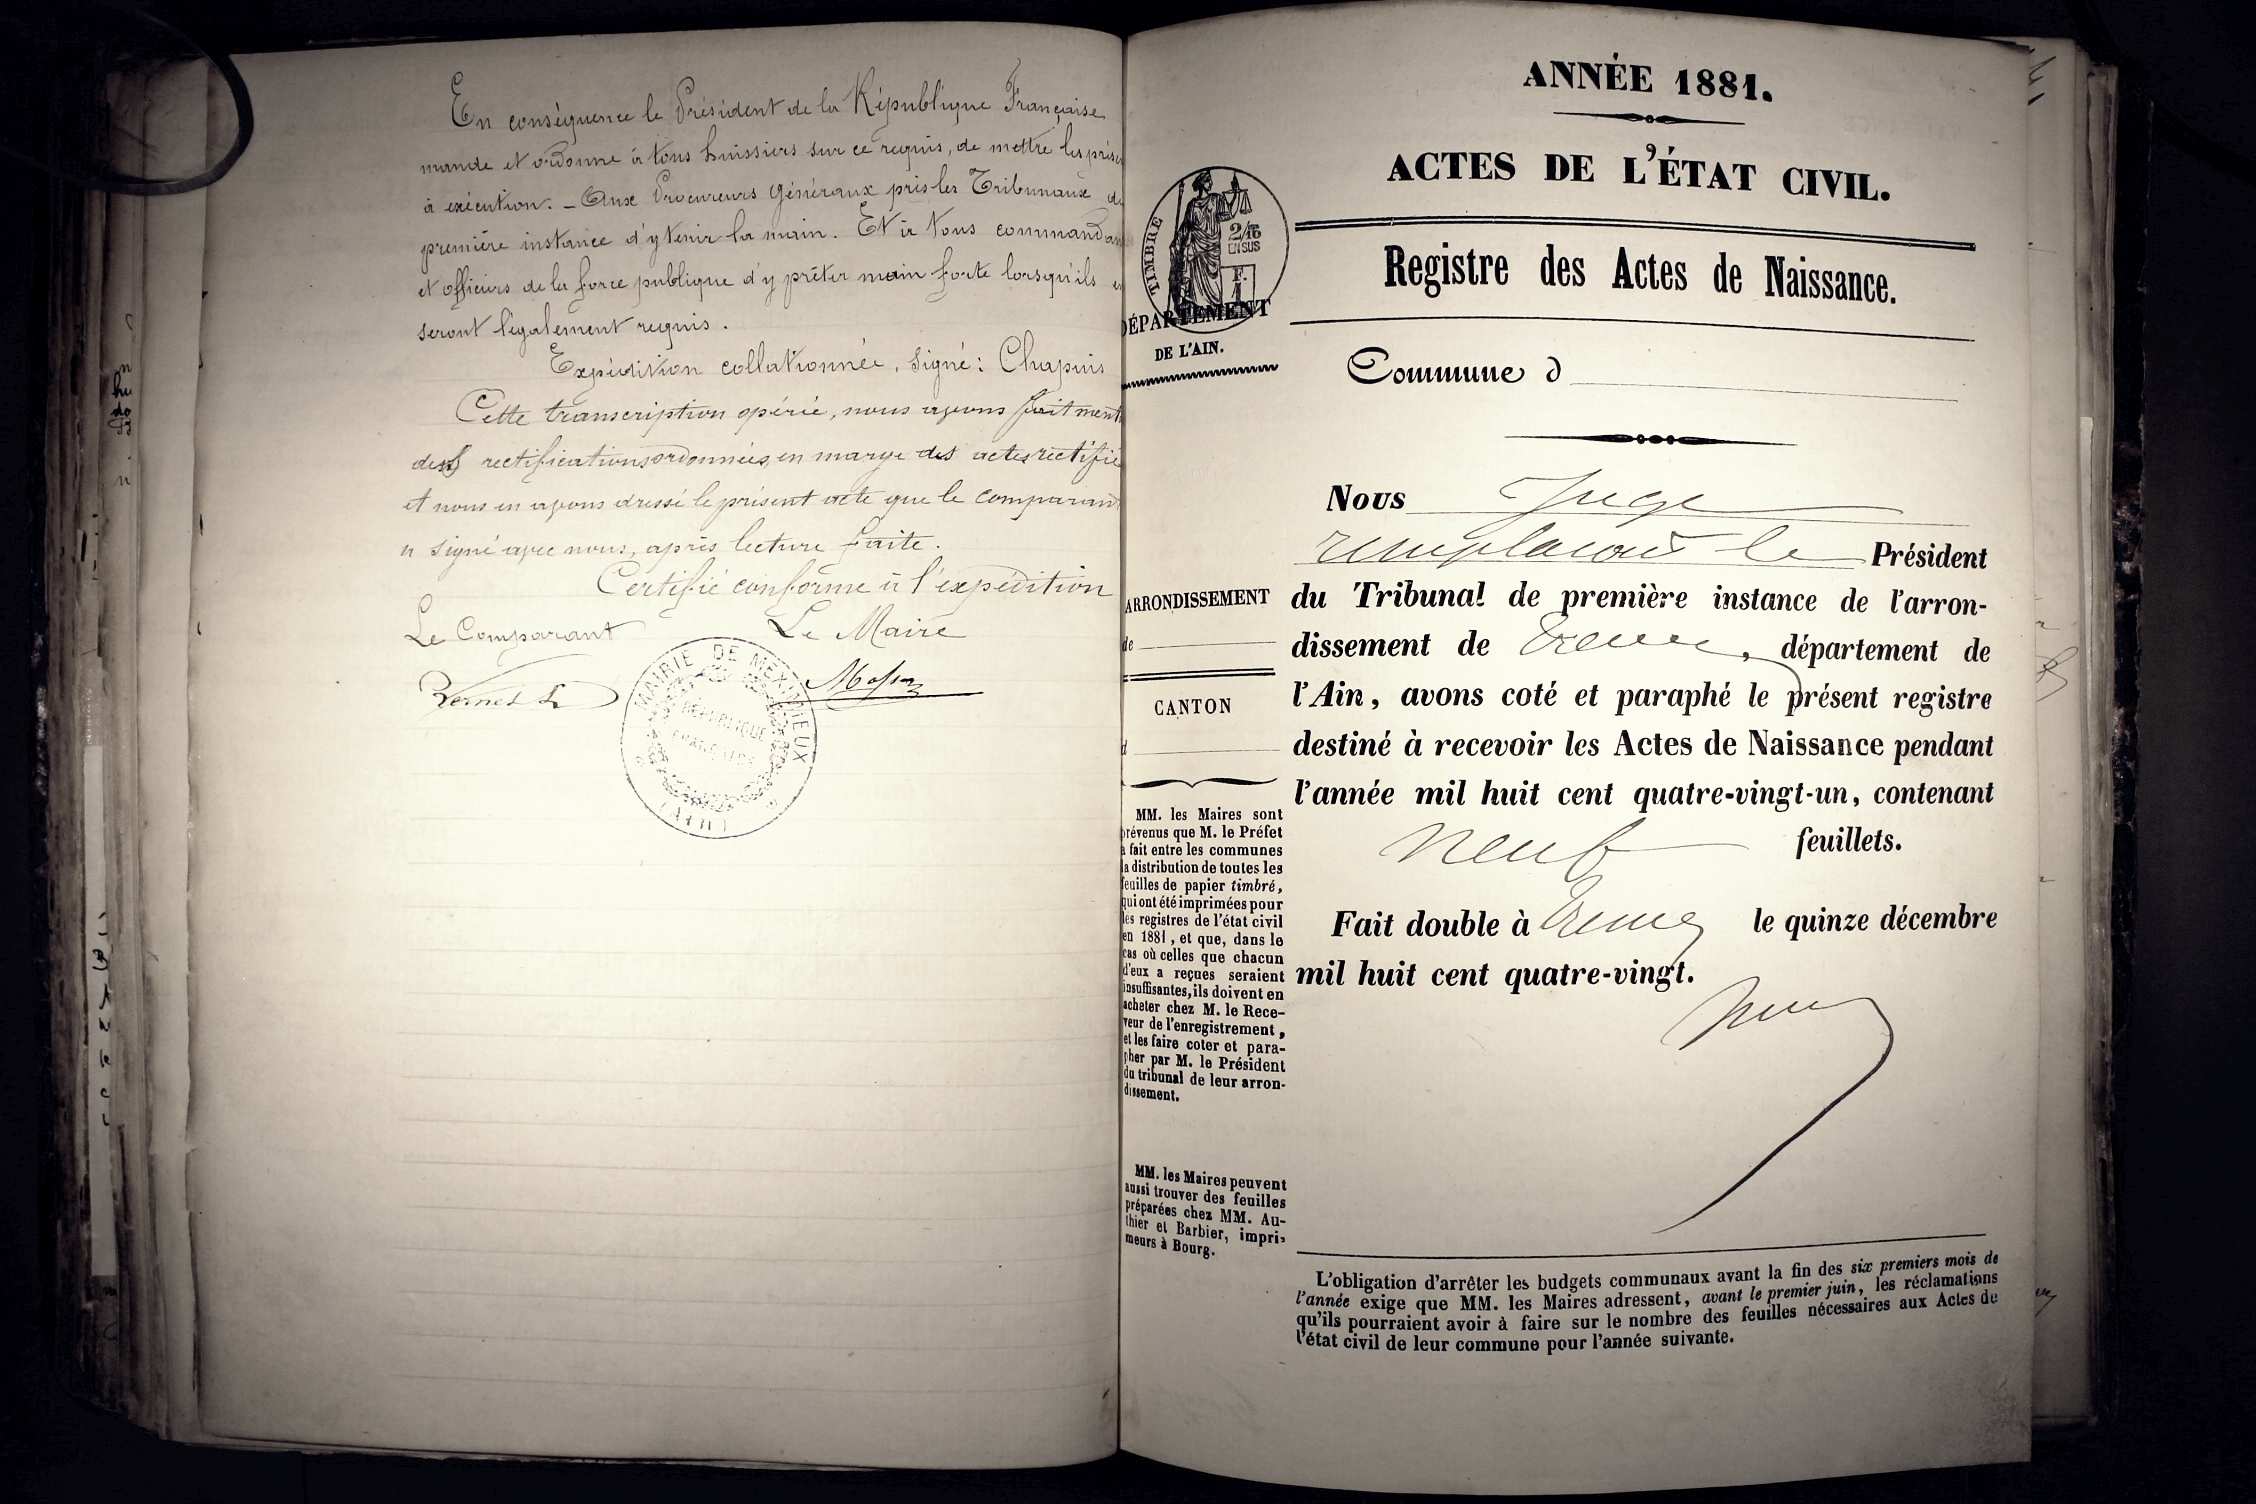 En conséquence le Président de la République Française
mande et ordonne à tous huissiers sur ce requis, de mettre les prése
à exécution. - Aux Procureurs Généraux près les Tribunaux de
première instance d'y tenir la main. Et à tous commandan
et officiers de la force publique d'y prêter main forte lorsqu'ils e
seront légalement requis.
Expédition collationnée, signé: Chapuis
Cette transcription opérée, nous avons fait ment
des rectifications ordonnées, en marge des actes rectifié
et nous en avons dressé le présent acte que le comparant
a signé avec nous, après lecture faite.
Certifié conforme à l'expédition
Le Comparant
Le Maire
MAIRIE DE MEXIMIEUX
RÉPUBLIQUE
FRANÇAISE
(AIN)
ANNÉE 1881.
ACTES DE L'ÉTAT CIVIL.
TIMBRE
2/10
EN SUS
F.
1
DÉPARTEMENT
DE L'AIN.
Registre des Actes de Naissance.
Commune d
Nous Juge
remplaçant le Président
ARRONDISSEMENT
de
CANTON
d
du Tribunal de première instance de l'arron-
dissement de Trévoux, département de
l'Ain, avons coté et paraphé le présent registre
destiné à recevoir les Actes de Naissance pendant
l'année mil huit cent quatre-vingt-un, contenant
neuf feuillets.
Fait double à Trévoux le quinze décembre
mil huit cent quatre-vingt.
MM. les Maires sont
prévenus que M. le Préfet
a fait entre les communes
la distribution de toutes les
feuilles de papier timbré,
qui ont été imprimées pour
les registres de l'état civil
en 1881, et que, dans le
cas où celles que chacun
d'eux a reçues seraient
insuffisantes, ils doivent en
acheter chez M. le Rece-
veur de l'enregistrement,
et les faire coter et para-
pher par M. le Président
du tribunal de leur arron-
dissement.
MM. les Maires peuvent
aussi trouver des feuilles
préparées chez MM. Au-
thier et Barbier, impri-
meurs à Bourg.
L'obligation d'arrêter les budgets communaux avant la fin des six premiers mois de
l'année exige que MM. les Maires adressent, avant le premier juin, les réclamations
qu'ils pourraient avoir à faire sur le nombre des feuilles nécessaires aux Actes de
l'état civil de leur commune pour l'année suivante.